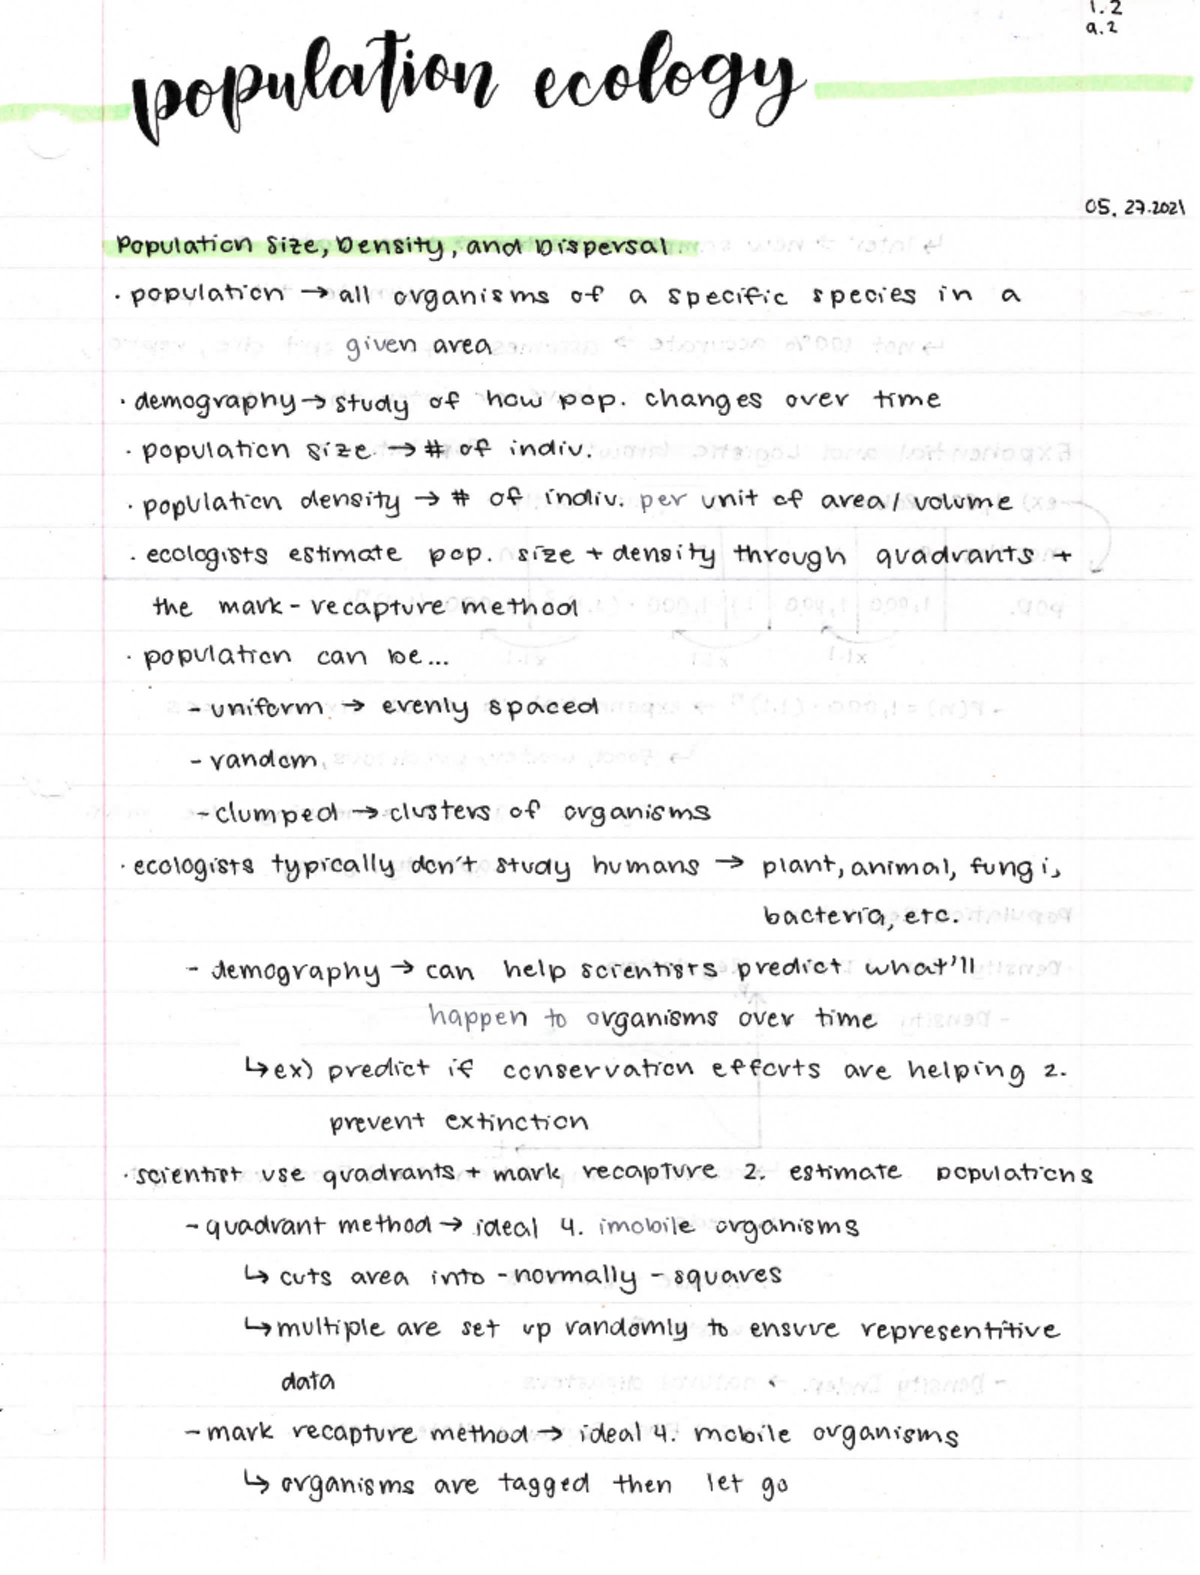 1.2
a.2
population ecology
05.27.2021
Population Size, Density, and Dispersal
· population → all organisms of a specific species in a
given area
· demography → study of how pop. changes over time
· population size → # of indiv.
· population density → # of indiv. per unit of area/volume
· ecologists estimate pop. size + density through quadrants +
the mark-recapture method
· population can be...
- uniform → evenly spaced
- random
- clumped → clusters of organisms
· ecologists typically don't study humans → plant, animal, fungi,
bacteria, etc.
- demography → can help scientists predict what'll
happen to organisms over time
↳ ex) predict if conservation efforts are helping 2.
prevent extinction
· scientist use quadrants + mark recapture 2. estimate populations
- quadrant method → ideal 4. imobile organisms
↳ cuts area into - normally - squares
↳ multiple are set up randomly to ensure representitive
data
- mark recapture method → ideal 4. mobile organisms
↳ organisms are tagged then let go